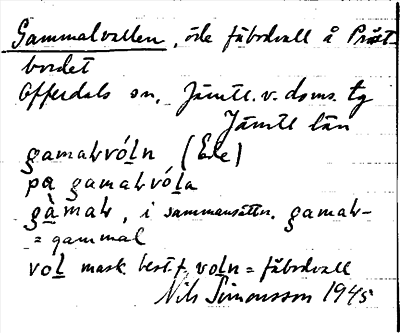 Gammalvallen, öde fäbodvall å Präst-
bordet
Offerdals sn, Jämtl. v. doms. tg
Jämtl län
gamaƚvóln (Ede)
pa gamaƚvóla
gàmaƚ, i sammansättn. gamaƚ-
= gammal
vol mask best f. voln = fäbodvall
Nils Simonsson 1945